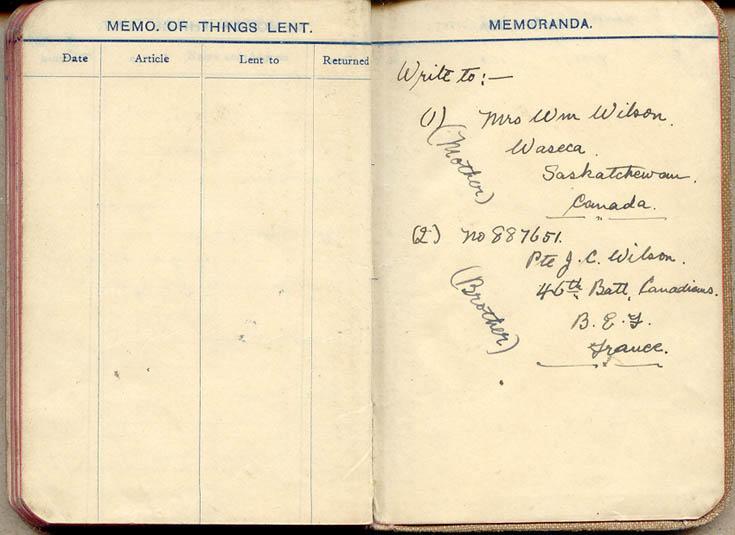 MEMO. OF THINGS LENT.
Date Article Lent to Returned
MEMORANDA.
Write to:—
(1) Mrs Wm Wilson.
(Mother)
Waseca.
Saskatchewan.
Canada.
(2) No 887651.
Pte J. C. Wilson.
(Brother)
46th Batt, Canadians.
B. E. F.
France.